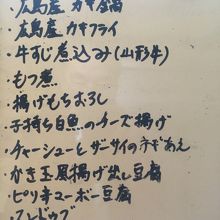 ・広島産 カキ鍋
・広島産 カキフライ
・牛すじ煮込み(山形牛)
・もつ煮
・揚げもちおろし
・子持ち白魚のチーズ揚げ
・チャーシューとザーサイのネギあえ
・かき玉風揚げ出し豆腐
・ピリ辛マーボー豆腐